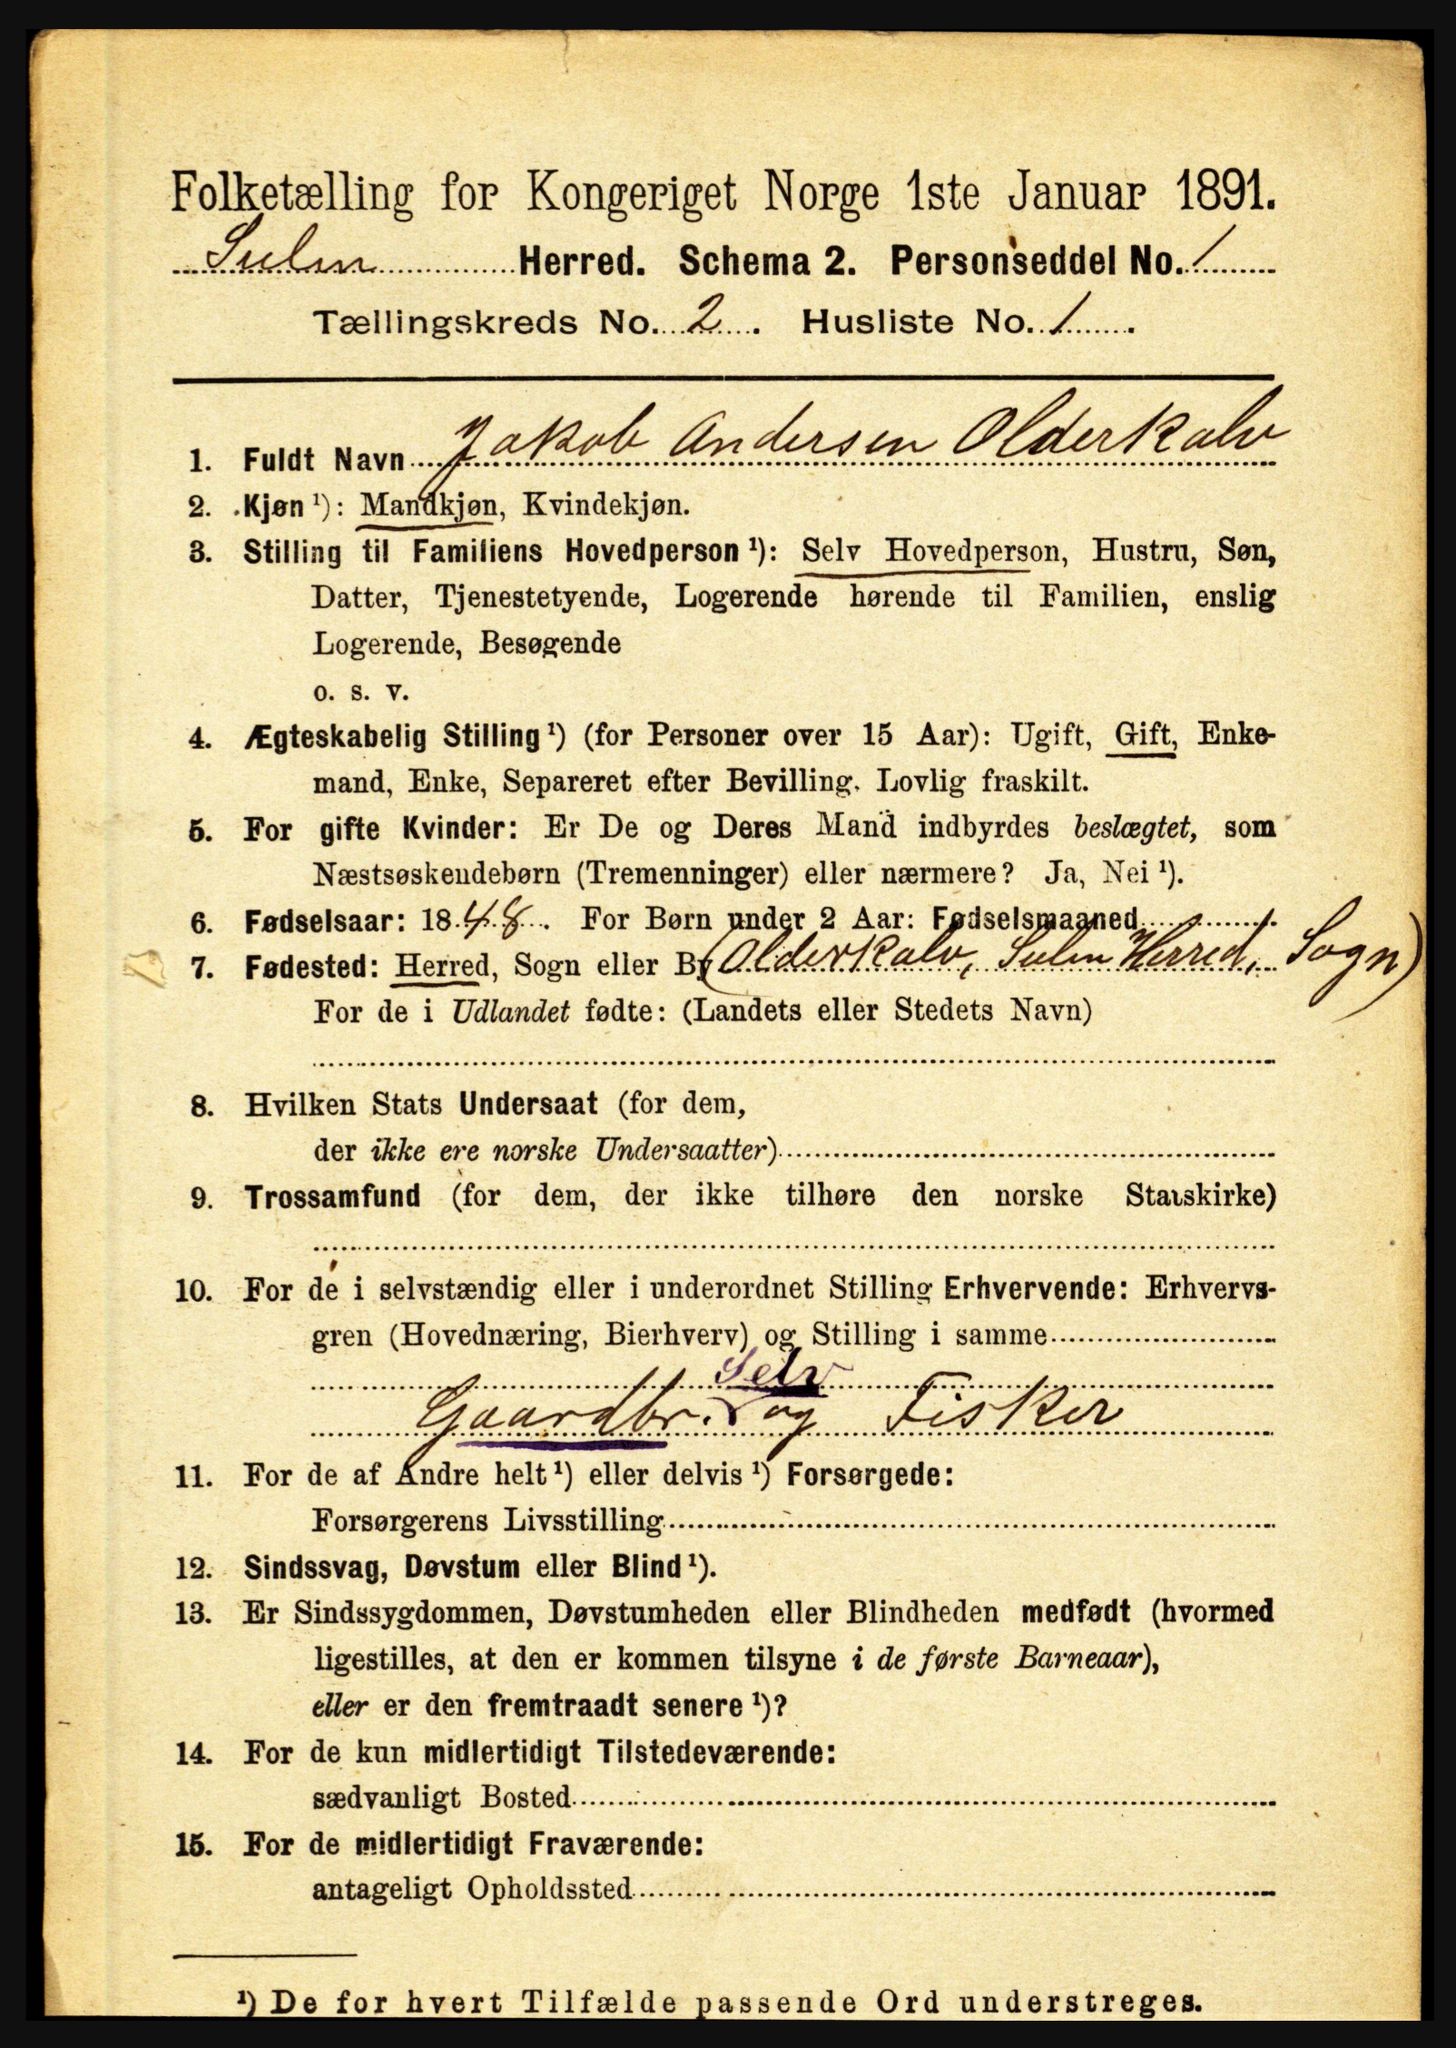 Folketælling for Kongeriget Norge 1ste Januar 1891.
Sulen Herred. Schema 2. Personseddel No. 1
Tællingskreds No. 2. Husliste No. 1.
1. Fuldt Navn Jakob Andersen Olderkalv
2. Kjøn ¹): Mandkjøn, Kvindekjøn.
3. Stilling til Familiens Hovedperson ¹): Selv Hovedperson, Hustru, Søn,
Datter, Tjenestetyende, Logerende hørende til Familien, enslig
Logerende, Besøgende
o. s. v.
4. Ægteskabelig Stilling ¹) (for Personer over 15 Aar): Ugift, Gift, Enke-
mand, Enke, Separeret efter Bevilling. Lovlig fraskilt.
5. For gifte Kvinder: Er De og Deres Mand indbyrdes beslægtet, som
Næstsøskendebørn (Tremenninger) eller nærmere? Ja, Nei ¹).
6. Fødselsaar: 1848. For Børn under 2 Aar: Fødselsmaaned
7. Fødested: Herred, Sogn eller By (Olderkalv, Sulen Herred, Sogn)
For de i Udlandet fødte: (Landets eller Stedets Navn)
8. Hvilken Stats Undersaat (for dem,
der ikke ere norske Undersaatter)
9. Trossamfund (for dem, der ikke tilhøre den norske Statskirke)
10. For de i selvstændig eller i underordnet Stilling Erhvervende: Erhvervs-
gren (Hovednæring, Bierhverv) og Stilling i samme
Selv
Gaardbr. og Fisker
11. For de af Andre helt ¹) eller delvis ¹) Forsørgede:
Forsørgerens Livsstilling
12. Sindssvag, Døvstum eller Blind ¹).
13. Er Sindssygdommen, Døvstumheden eller Blindheden medfødt (hvormed
ligestilles, at den er kommen tilsyne i de første Barneaar),
eller er den fremtraadt senere ¹)?
14. For de kun midlertidigt Tilstedeværende:
sædvanligt Bosted
15. For de midlertidigt Fraværende:
antageligt Opholdssted
¹) De for hvert Tilfælde passende Ord understreges.